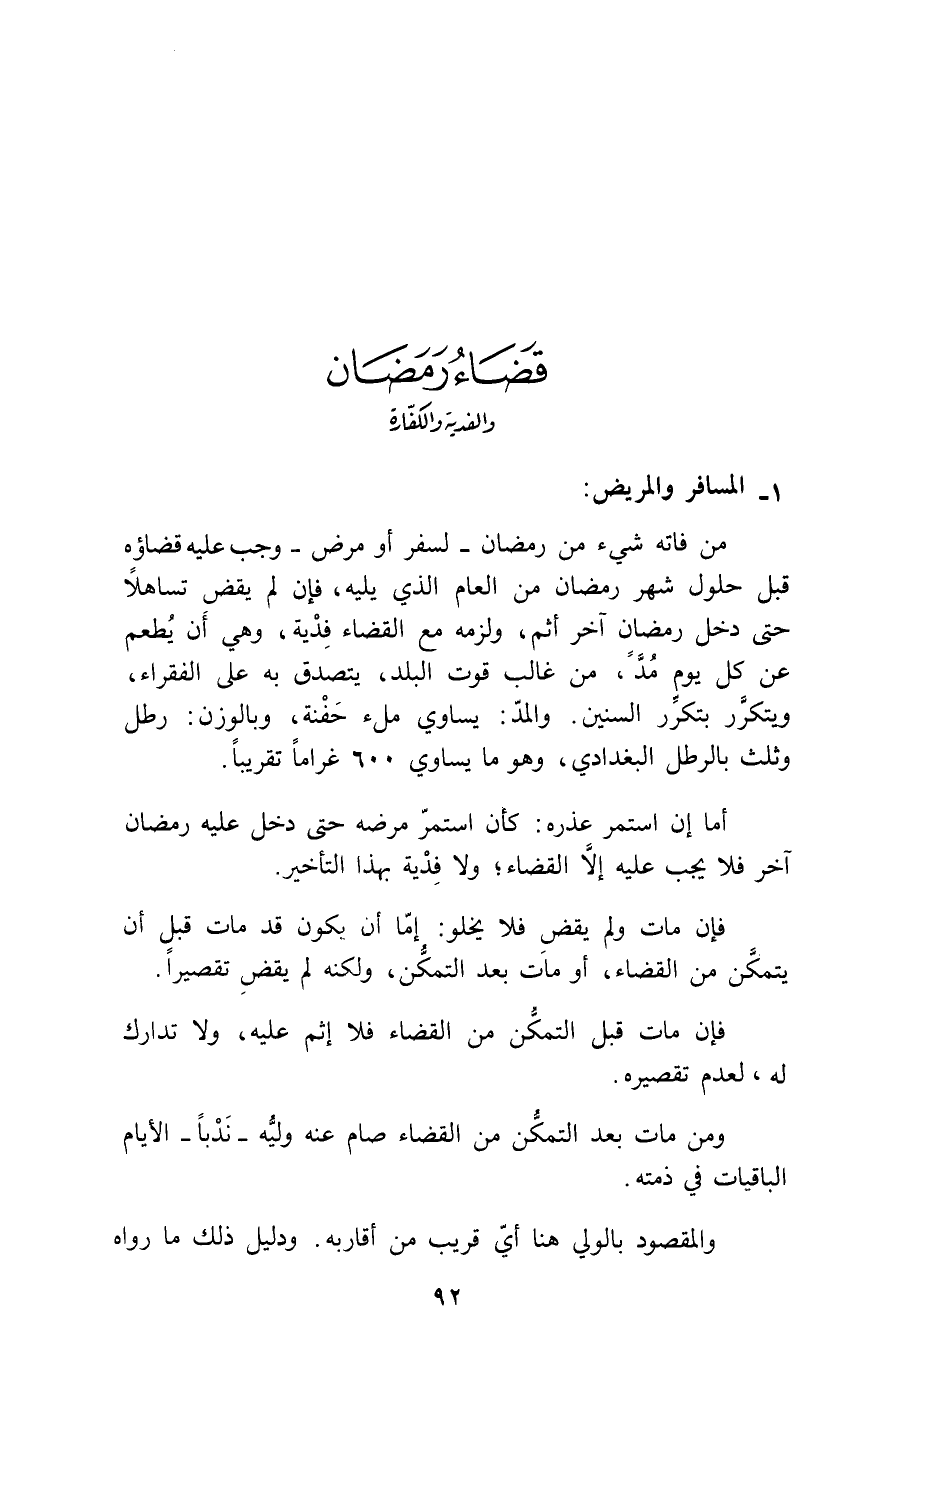 قَضَاءُ رَمَضَان
والفدية والكفّارة
١ـ المسافر والمريض:
من فاته شيء من رمضان ـ لسفر أو مرض ـ وجب عليه قضاؤه
قبل حلول شهر رمضان من العام الذي يليه، فإن لم يقض تساهلاً
حتى دخل رمضان آخر أثم، ولزمه مع القضاء فِدْية، وهي أَن يُطعم
عن كل يوم مُدَّاً، من غالب قوت البلد، يتصدق به على الفقراء،
ويتكرَّر بتكرِّر السنين. والمدّ: يساوي ملء حَفْنة، وبالوزن: رطل
وثلث بالرطل البغدادي، وهو ما يساوي ٦٠٠ غراماً تقريباً.
أما إن استمر عذره: كأن استمرّ مرضه حتى دخل عليه رمضان
آخر فلا يجب عليه إلَّا القضاء؛ ولا فِدْية بهذا التأخير.
فإن مات ولم يقض فلا يخلو: إمّا أن يكون قد مات قبل أن
يتمكَّن من القضاء، أو مات بعد التمكُّن، ولكنه لم يقضِ تقصيراً.
فإن مات قبل التمكُّن من القضاء فلا إثم عليه، ولا تدارك
له، لعدم تقصيره.
ومن مات بعد التمكُّن من القضاء صام عنه وليُّه ـ نَدْباً ـ الأيام
الباقيات في ذمته.
والمقصود بالولي هنا أيّ قريب من أقاربه. ودليل ذلك ما رواه
٩٢